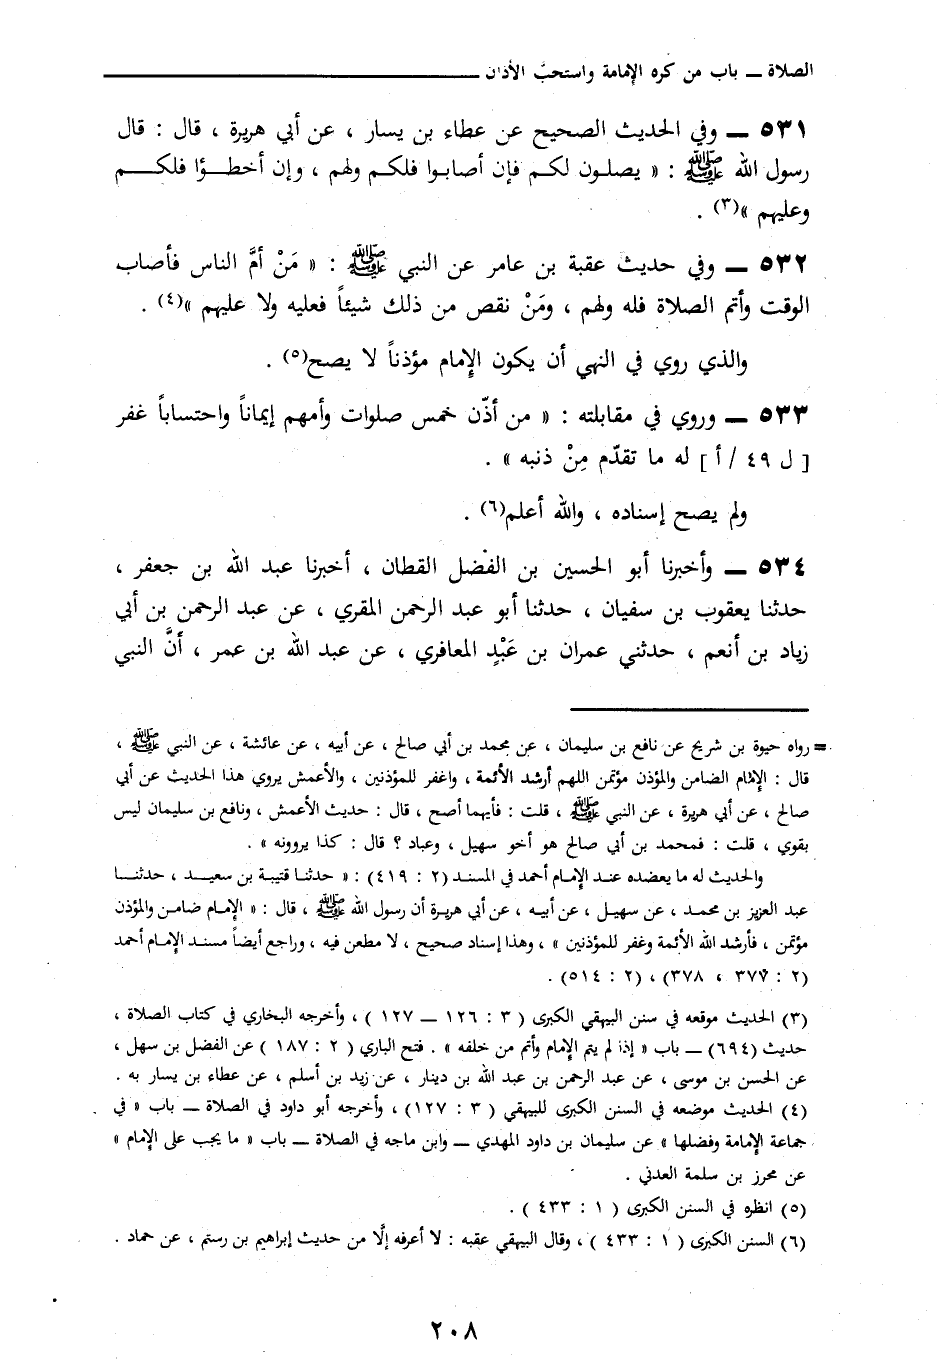 الصلاة ــ باب من كره الإمامة واستحبَّ الأذان
٥٣١ ــ وفي الحديث الصحيح عن عطاء بن يسار ، عن أبي هريرة ، قال : قال
رسول الله ﷺ : « يصلون لكم فإن أصابوا فلكم ولهم ، وإن أخطؤا فلكم
وعليهم »(٣) .
٥٣٢ ــ وفي حديث عقبة بن عامر عن النبي ﷺ : « مَنْ أمَّ الناس فأصاب
الوقت وأتم الصلاة فله ولهم ، ومَنْ نقص من ذلك شيئاً فعليه ولا عليهم »(٤) .
والذي روي في النهي أن يكون الإمام مؤذناً لا يصح(٥) .
٥٣٣ ــ وروي في مقابلته : « من أذّن خمس صلوات وأمهم إيماناً واحتساباً غفر
[ ل ٤٩ / أ ] له ما تقدّم مِنْ ذنبه » .
ولم يصح إسناده ، والله أعلم(٦) .
٥٣٤ ــ وأخبرنا أبو الحسين بن الفضل القطان ، أخبرنا عبد الله بن جعفر ،
حدثنا يعقوب بن سفيان ، حدثنا أبو عبد الرحمن المقري ، عن عبد الرحمن بن أبي
زياد بن أنعم ، حدثني عمران بن عَبْدٍ المعافري ، عن عبد الله بن عمر ، أنَّ النبي
= رواه حيوة بن شريح عن نافع بن سليمان ، عن محمد بن أبي صالح ، عن أبيه ، عن عائشة ، عن النبي ﷺ ،
قال : الإمام الضامن والمؤذن مؤتمن اللهم أرشد الأئمة ، واغفر للمؤذنين ، والأعمش يروي هذا الحديث عن أبي
صالح ، عن أبي هريرة ، عن النبي ﷺ ، قلت : فأيهما أصح ، قال : حديث الأعمش ، ونافع بن سليمان ليس
بقوي ، قلت : فمحمد بن أبي صالح هو أخو سهيل ، وعباد ؟ قال : كذا يروونه » .
والحديث له ما يعضده عند الإمام أحمد في المسند (٢ : ٤١٩) : « حدثنا قتيبة بن سعيد ، حدثنا
عبد العزيز بن محمد ، عن سهيل ، عن أبيه ، عن أبي هريرة أن رسول الله ﷺ ، قال : « الإمام ضامن والمؤذن
مؤتمن ، فأرشد الله الأئمة وغفر للمؤذنين » ، وهذا إسناد صحيح ، لا مطعن فيه ، وراجع أيضاً مسند الإمام أحمد
(٢ : ٣٧٧ ، ٣٧٨) ، (٢ : ٥١٤) .
(٣) الحديث موقعه في سنن البيهقي الكبرى ( ٣ : ١٢٦ ــ ١٢٧ ) ، وأخرجه البخاري في كتاب الصلاة ،
حديث (٦٩٤) ــ باب « إذا لم يتم الإمام وأتم من خلفه » . فتح الباري ( ٢ : ١٨٧ ) عن الفضل بن سهل ،
عن الحسن بن موسى ، عن عبد الرحمن بن عبد الله بن دينار ، عن زيد بن أسلم ، عن عطاء بن يسار به .
(٤) الحديث موضعه في السنن الكبرى للبيهقي ( ٣ : ١٢٧) ، وأخرجه أبو داود في الصلاة ــ باب « في
جماعة الإمامة وفضلها » عن سليمان بن داود المهدي ــ وابن ماجه في الصلاة ــ باب « ما يجب على الإمام »
عن محرز بن سلمة العدني .
(٥) انظره في السنن الكبرى ( ١ : ٤٣٣ ) .
(٦) السنن الكبرى ( ١ : ٤٣٣ ) ، وقال البيهقي عقبه : لا أعرفه إلَّا من حديث إبراهيم بن رستم ، عن حماد .
٢٠٨